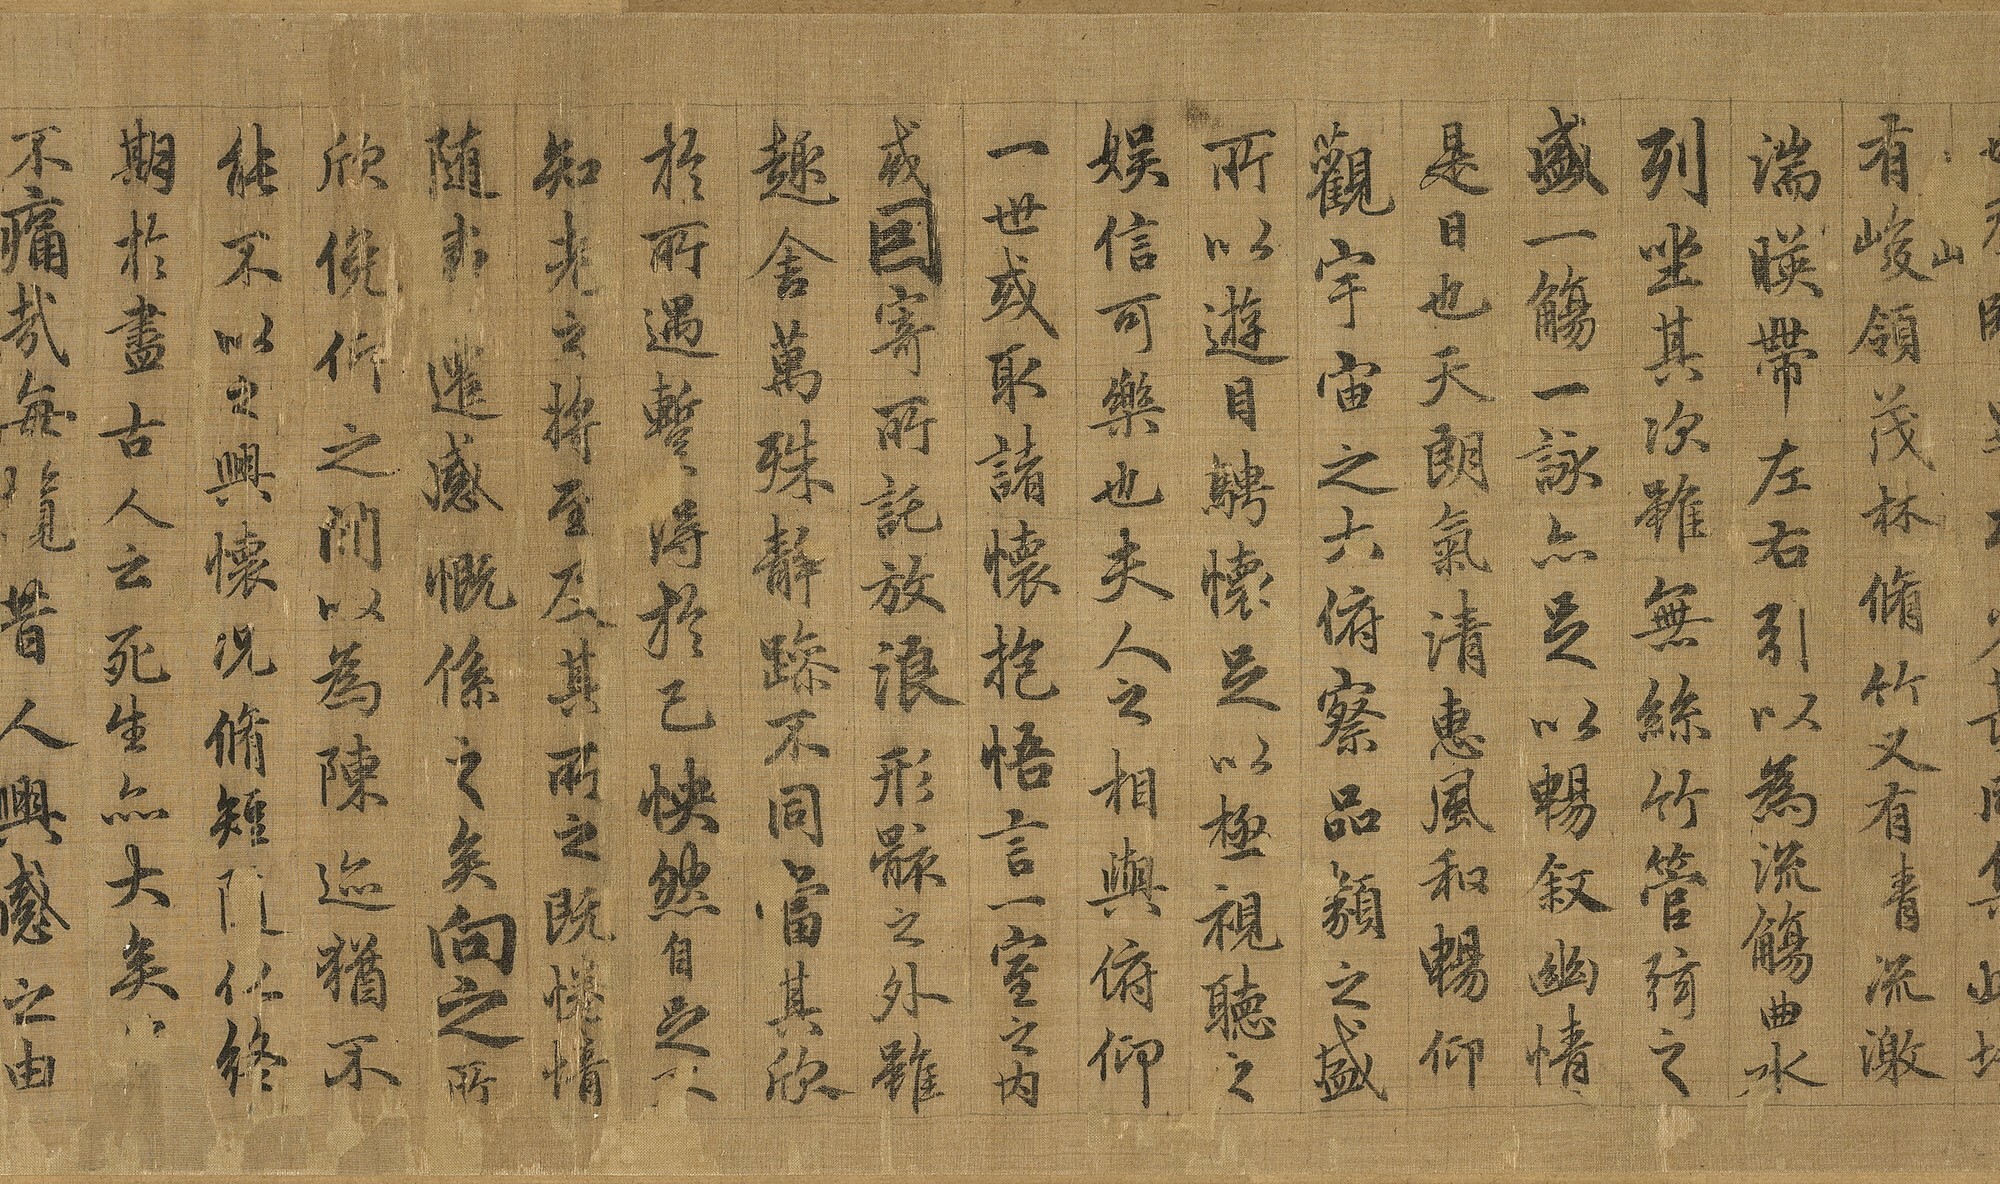 有峻領茂林脩竹又有青流激
山
湍暎帶左右引以為流觴曲水
列坐其次雖無絲竹管弦之
盛一觴一詠亦足以暢叙幽情
是日也天朗氣清惠風和暢仰
觀宇宙之大俯察品類之盛
所以遊目騁懷足以極視聽之
娛信可樂也夫人之相與俯仰
一世或取諸懷抱悟言一室之内
或因寄所託放浪形骸之外雖
趣舍萬殊静躁不同當其欣
於所遇蹔得於己怏然自足不
知老之將至及其所之既惓情
隨事遷感慨係之矣向之所
欣俛仰之間以為陳迹猶不
能不以之興懷況脩短隨化終
期於盡古人云死生亦大矣
不痛哉每攬昔人興感之由